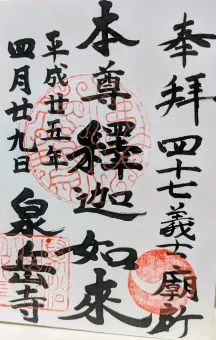 奉拝 四十七義士廟所
本尊 釋迦如来
平成廿五年
四月廿九日
泉岳寺